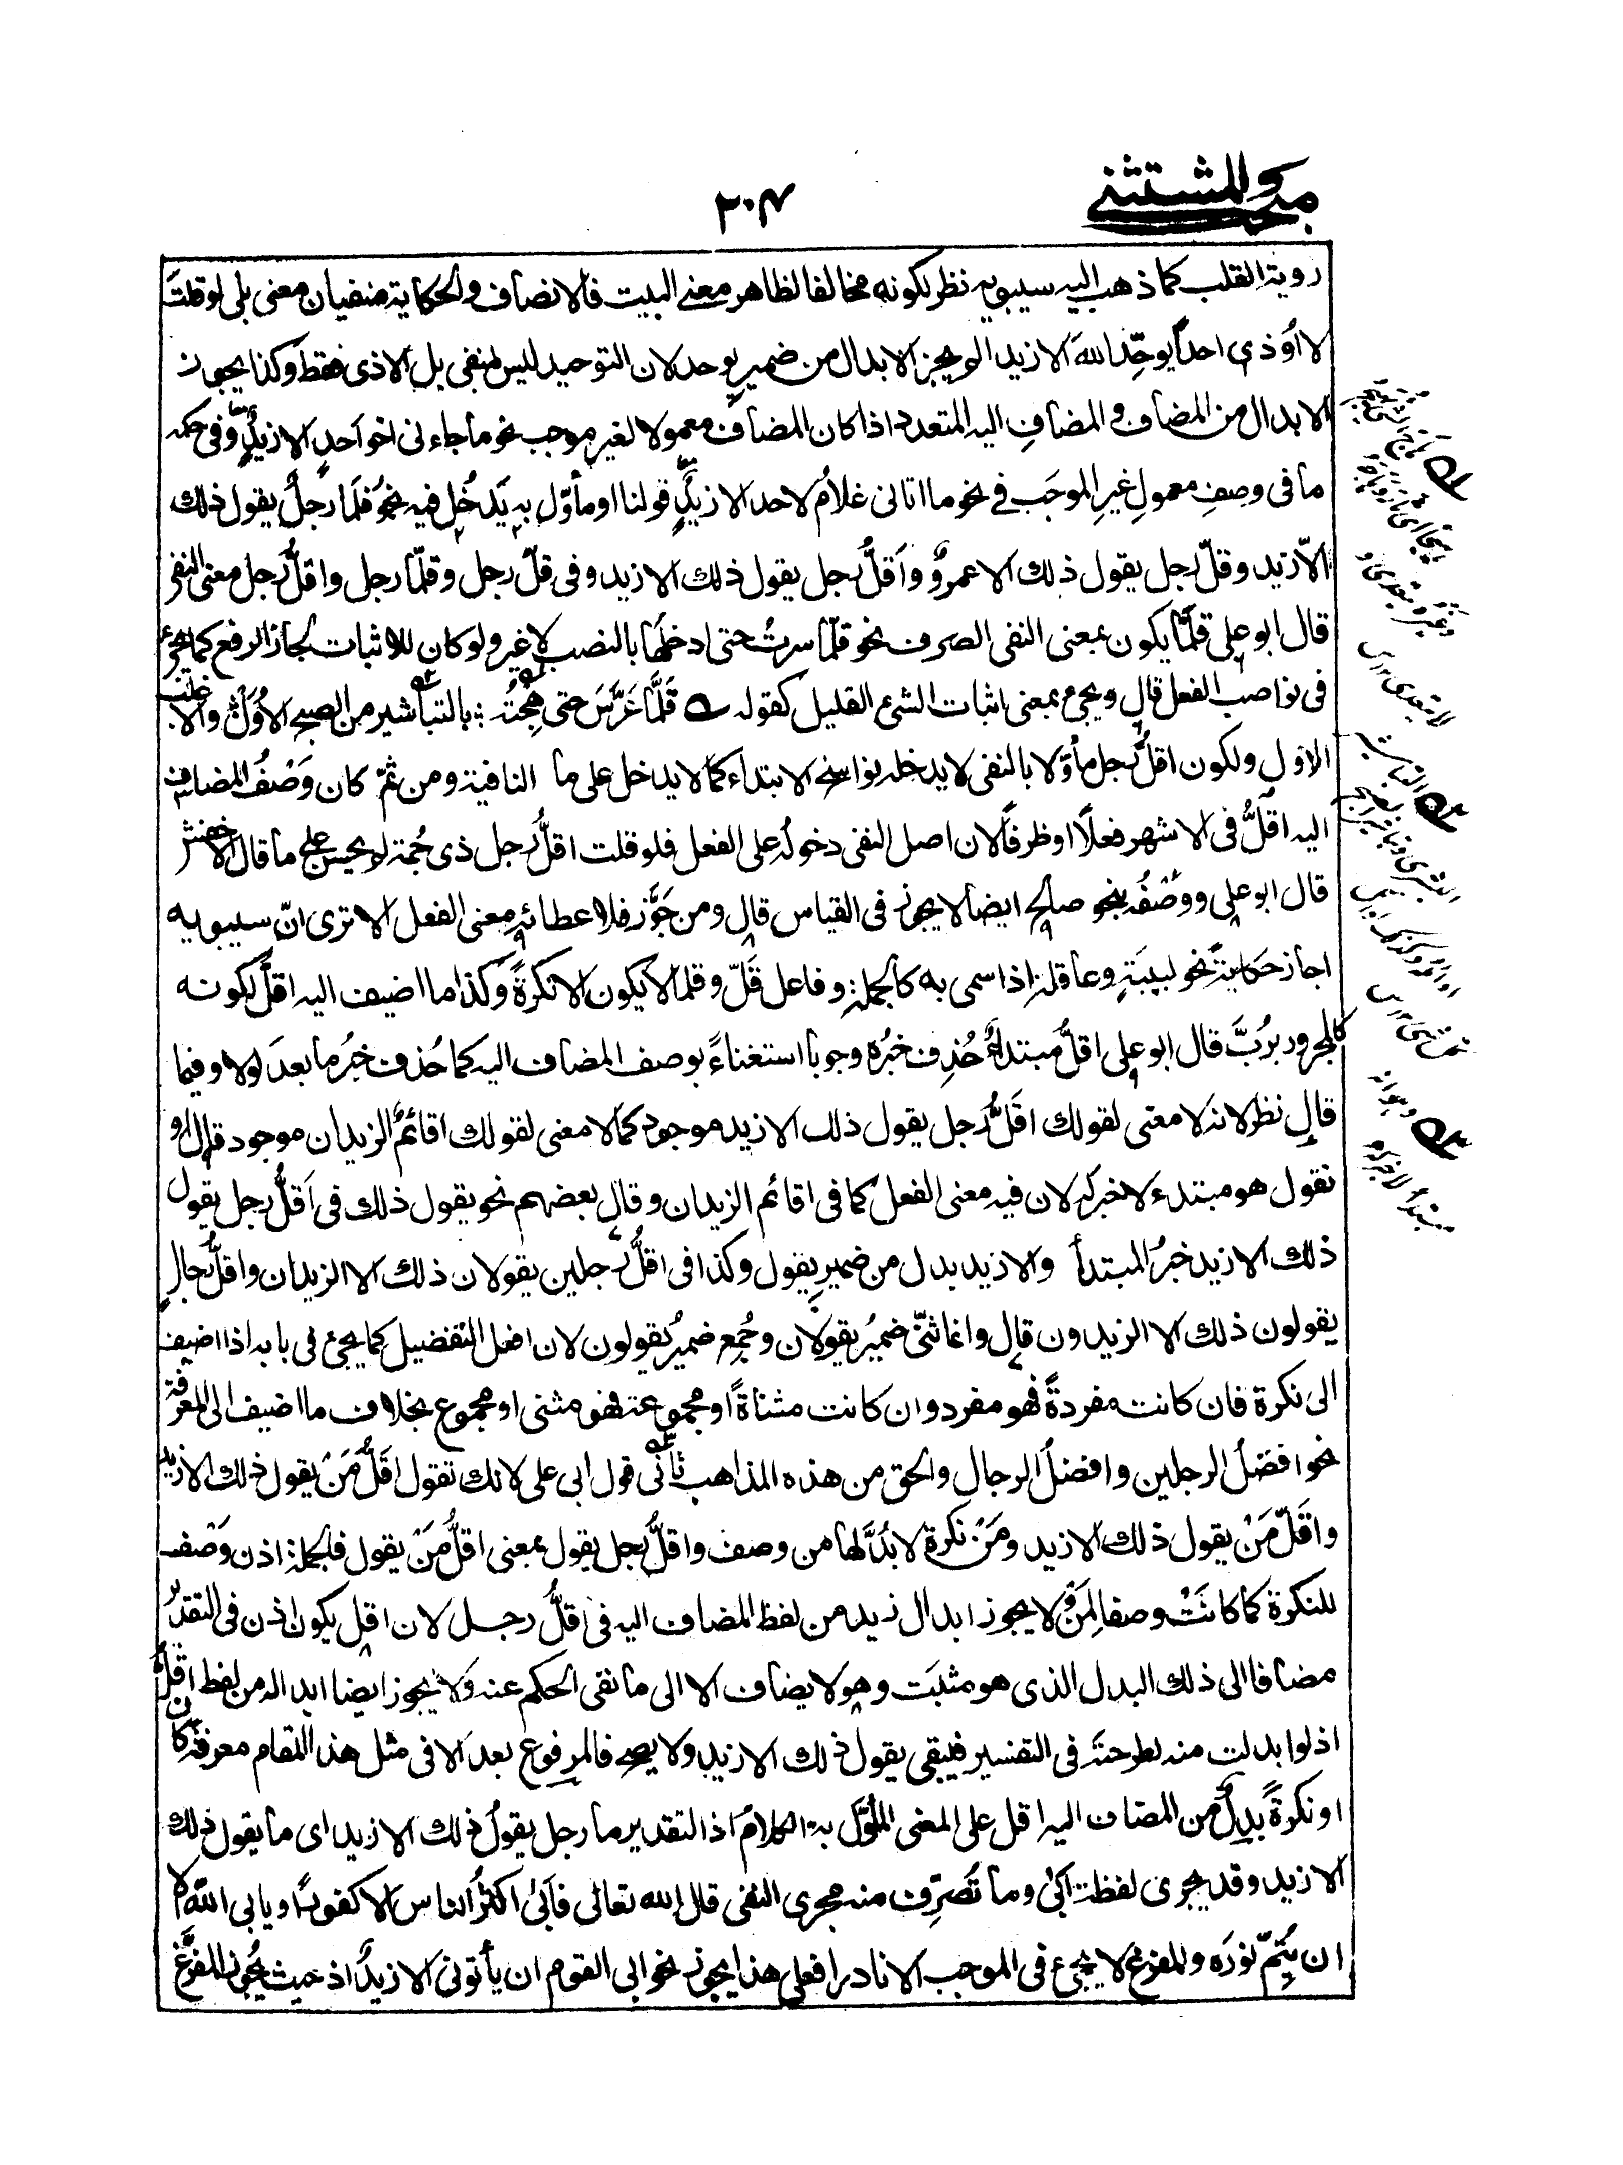 مبحث المستثنى
٣٠٤
روية القلب كما ذهب اليه سيبويه نظر لكونه مخالفا لظاهر معنى البيت فالانصاف والحكاية منفيان معنى بلى لو قلتَ
لا اُوذى احداً يوحِّد اللهَ الا زيدا لم يجز الابدال من ضمير يوحد لان التوحيد ليس بمنفى بل الاذى فقط وكذا يجوز
الابدال من المضاف و المضافِ اليه المتعدد اذا كان المضاف معمولا لغير موجب نحو ما جاءنى اخو اَحدٍ الا زيدٌٍ و فى حكمه
ما فى وصفِ معمولِ غيرِ الموجَب فى نحو ما اتانى غلامٌ لاحد الا زيدٍ قولنا او مأوّل به يَدخُل فيه نحوُ قلّما رجلٌ يقول ذلك
الاّ زيد و قلّ رجل يقول ذلك الا عمروٌ و اَقلُّ رجل يقول ذلك الا زيد و فى قلّ رجل و قلّما رجل و اقلُّ رجل معنى النفى
قال ابو على قلَّما يكون بمعنى النفى الصرف نحو قلّما سرتُ حتى ادخلَها بالنصب لا غير ولو كان للاثبات لجاز الرفع كما يجئ
فى نواصب الفعل قال و يجئ بمعنى اثبات الشئ القليل كقوله ٥ قَلَّما عَرَّسَ حتى هِجتُه ؛ بالتباشير من الصبح الاُوَلْ و الاغلب
الاول و لكون اقلُّ رجل مأوّلا بالنفى لا يدخله نواسخ الابتداء كما لا يدخل على ما النافية ومن ثَمّ كان وَصْفُ المضاف
اليه اقلُّ فى الاشهر فعلاً او ظرفاً لان اصل النفى دخوله على الفعل فلو قلت اقلُّ رجل ذى جُمة لم يحسن على ما قال الاخفش
قال ابو على و وصْفُه بنحو صالح ايضا لا يجوز فى القياس قال و من جَوَّز فلاعطائه معنى الفعل الا ترى انّ سيبويه
اجاز حكاية نحو لبيبَة و عاقلة اذا سمى به كالجملة و فاعل قَلّ و قلما لا يكون الا نكرةً و كذا ما اضيف اليه اقلُّ لكونه
كالمجرور بربَّ قال ابو على اقلُّ مبتدأٌ حُذِف خبرُه وجوبا استغناءً بوصف المضاف اليه كما حُذف خبرُ ما بعدَ لولا و فيما
قال نظر لانه لا معنى لقولك اقَلُّ رجل يقول ذلك الا زيد موجود كما لا معنى لقولك اقائمٌ الزيدان موجود قال او
نقول هو مبتدء لا خبر له لان فيه معنى الفعل كما فى اقائم الزيدان و قال بعضهم نحو يقول ذلك فى اَقلُّ رجل يقول
ذلك الا زيد خبرُ المبتدأ والا زيد بدل من ضمير يقول و كذا فى اقلُّ رجلين يقولان ذلك الا الزيدان و اقلُّ رجالٍ
يقولون ذلك الا الزيدون قال و انما ثنّى ضميرُ يقولان و جُمع ضميرُ يقولون لان افعل التفضيل كما يجئ فى بابه اذا اضيف
الى نكرة فان كانت مفردةً فهو مفرد و ان كانت مثناةً او مجموعة فهو مثنى او مجموع بخلاف ما اضيف الى المعرفة
نحو افضلُ الرجلين و افضلُ الرجال والحق من هذه المذاهب ثانى قولى ابى على لانك تقول اقَلُّ مَنْ يقول ذلك الا زيد
و اقَلّ مَنْ يقول ذلك الا زيد و مَنْ نكرة لا بُدَّ لها من وصف و اقلُّ رجل يقول بمعنى اقلُّ مَنْ يقول فالجملة اذن وَصْف
للنكرة كما كانَتْ وصفا لِمَنْ و لا يجوز ابدال زيد من لفظ المضاف اليه فى اقلُّ رجل لان اقل يكون اذن فى التقدير
مضافا الى ذلك البدل الذى هو مثبَت وهو لا يضاف الا الى ما نفى الحكم عنه وَلا يجوز ايضا ابداله من لفظ اقلُّ
اذ لو ابدلت منه لطرحتَه فى التفسير فيبقى يقول ذلك الا زيد ولا يصح فالمرفوع بعد الا فى مثل هذا المقام معرفة كان
او نكرةً بدلٌ من المضاف اليه اقل على المعنى المأوَّل به الكلامُ اذ التقدير ما رجل يقولُ ذلك الا زيد اى ما يقول ذلك
الا زيد و قد يجرى لفظة اَبىٰ و ما تُصرّف منه مجرى النفى قال الله تعالى فاَبىٰ اكثرُ الناس الا كفورًا و يابى الله الا
ان يُتِمّ نورَه والمفرغ لا يجئ فى الموجب الا نادرا فعلى هذا يجوز نحو ابى القوم ان يأتونى الا زيدٌ اذ حيث يجُوز المفرَّغ